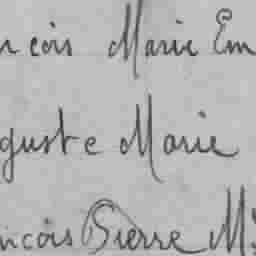 ncois Marie Em
guste Marie
ncois Pierre M